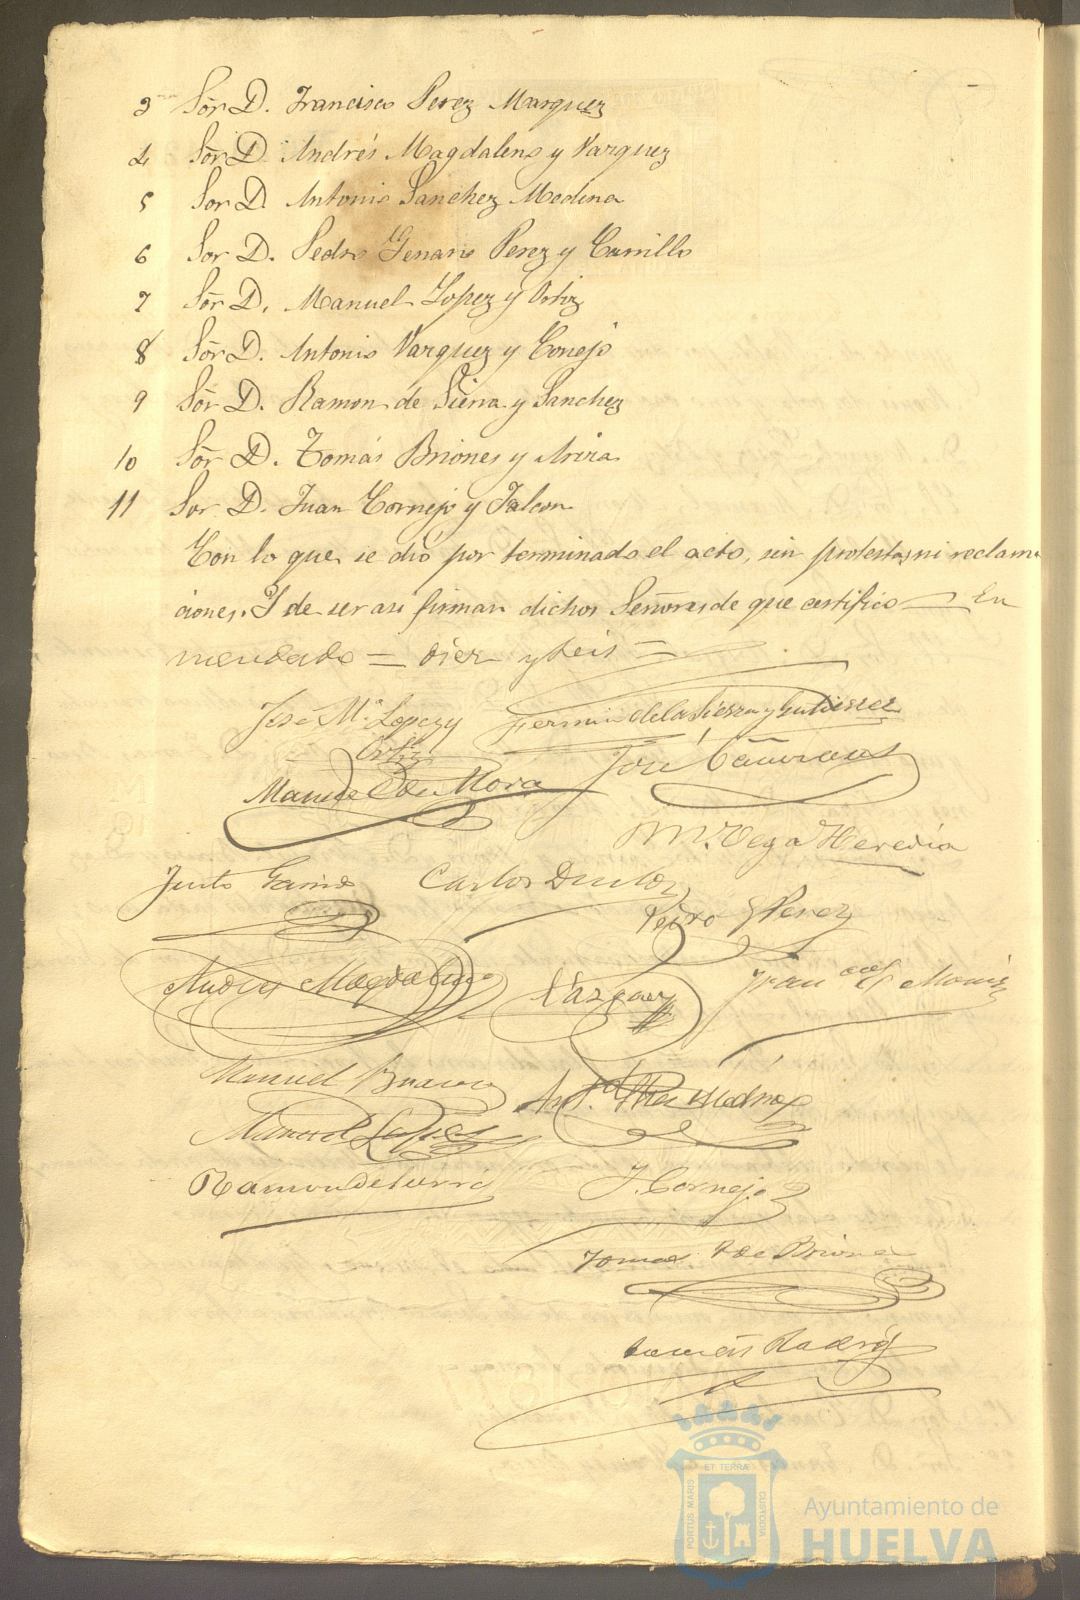 3 Sor D. Francisco Perez Marquez
4 Sor D. Andrés Magdaleno y Vazquez
5 Sor D. Antonio Sanchez Medina
6 Sor D. Pedro Genaro Perez y Carrillo
7 Sor D. Manuel Lopez y Ortiz
8 Sor D. Antonio Vazquez y Conejo
9 Sor D. Ramon de Sierra y Sanchez
10 Sor D. Tomás Briones y
11 Sor D. Juan Cornejo y Falcon
Con lo que se dió por terminado el acto, sin protestas, ni reclama
ciones. Y de ser asi firman dichos Señores de que certifico = En
mendado = diez y seis =
José Mª Lopez y Fermin de la Sierra y Gutierrez
Ortiz José
Manuel de Mora
M. Vega Heredia
Justo Carlos
Pedro G Perez
Andres Magdaleno Vazquez
Manuel
Manuel Lopez
Ramon de Sierra J. Cornejo
Tomas de Briones
ET TERRÆ
PORTUS MARIS
CUSTODIA
Ayuntamiento de
HUELVA